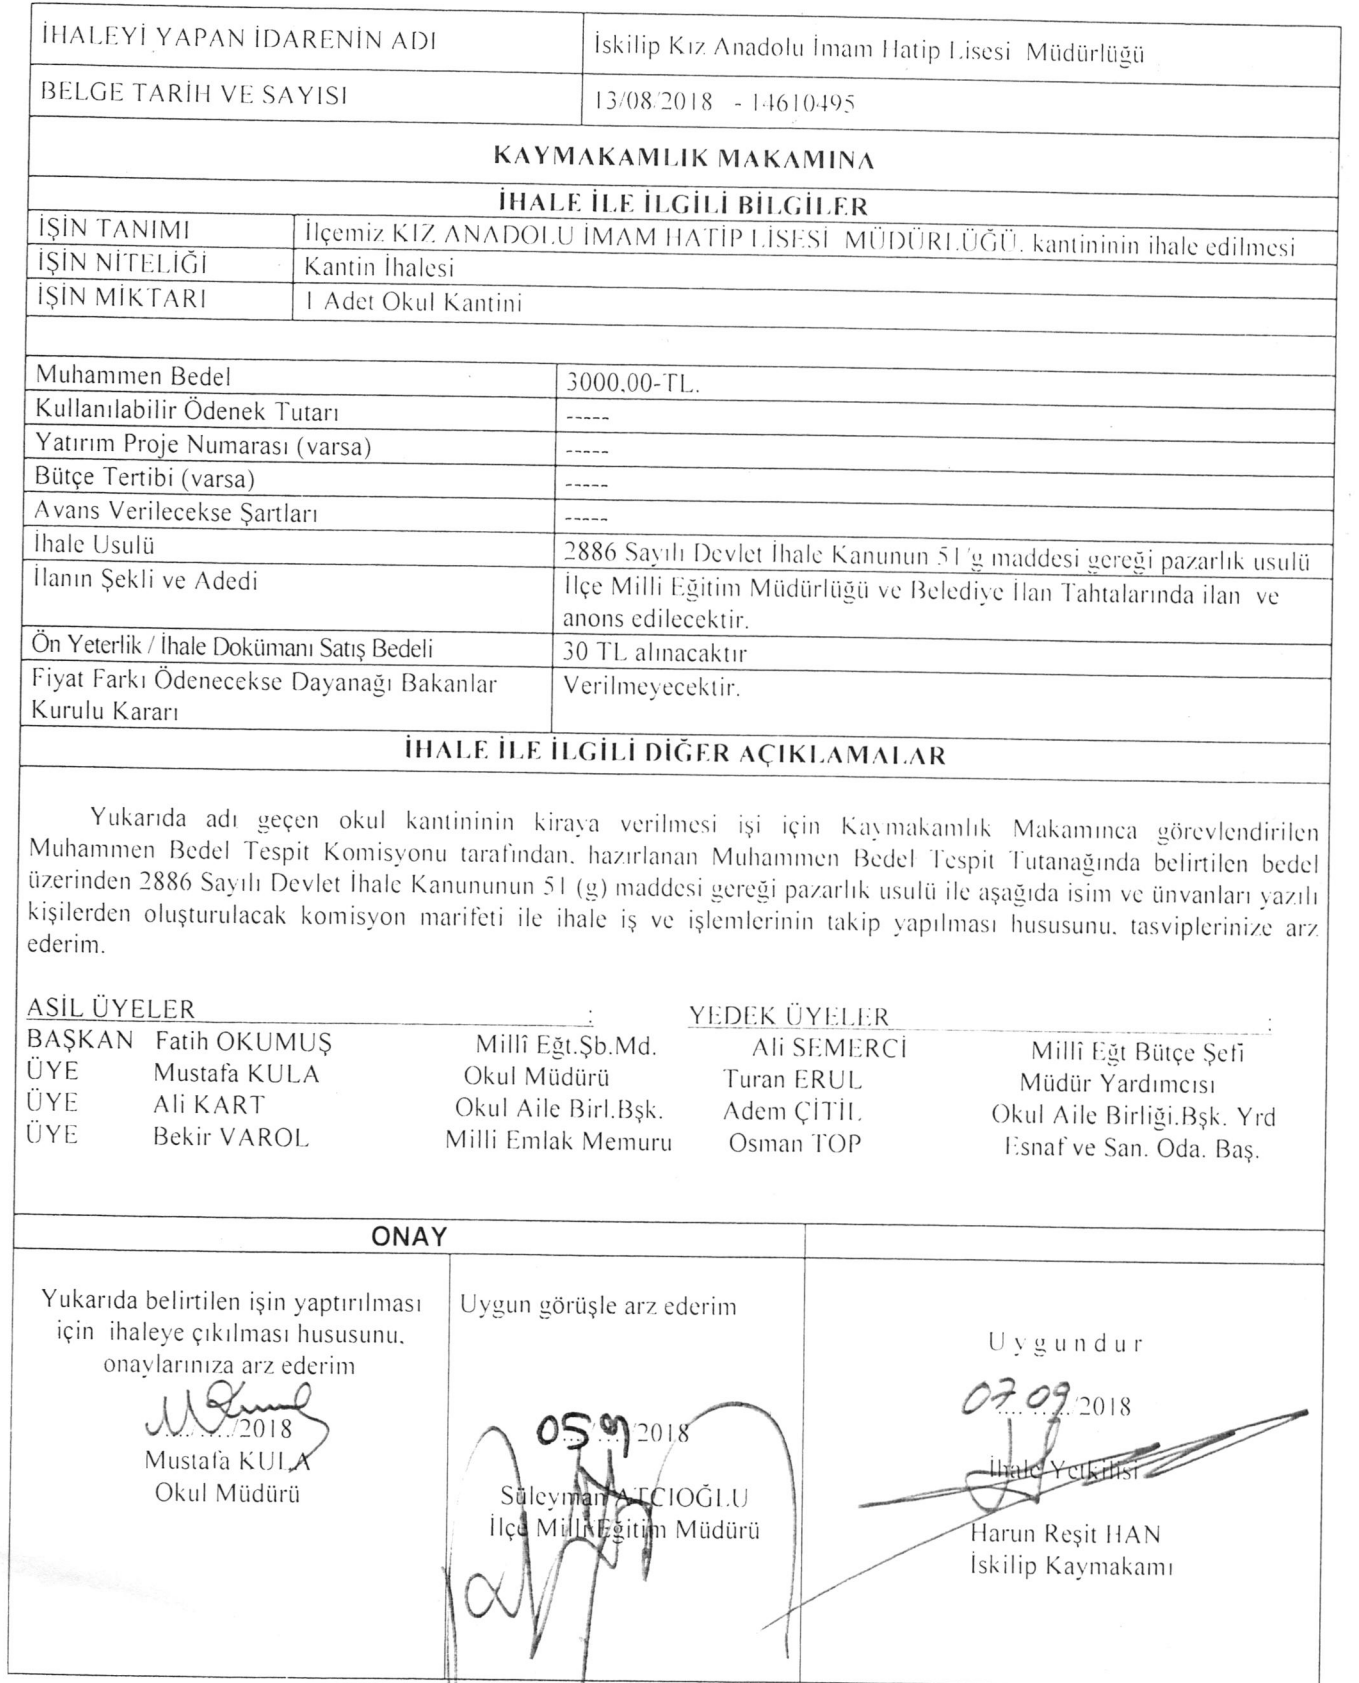 İHALEYİ YAPAN İDARENİN ADI İskilip Kız Anadolu İmam Hatip Lisesi Müdürlüğü
BELGE TARİH VE SAYISI 13/08/2018 - 14610495
KAYMAKAMLIK MAKAMINA
İHALE İLE İLGİLİ BİLGİLER
İŞİN TANIMI İlçemiz KIZ ANADOLU İMAM HATİP LİSESİ MÜDÜRLÜĞÜ. kantininin ihale edilmesi
İŞİN NİTELİĞİ Kantin İhalesi
İŞİN MİKTARI 1 Adet Okul Kantini
Muhammen Bedel 3000,00-TL.
Kullanılabilir Ödenek Tutarı -----
Yatırım Proje Numarası (varsa) -----
Bütçe Tertibi (varsa) -----
Avans Verilecekse Şartları -----
İhale Usulü 2886 Sayılı Devlet İhale Kanunun 51/g maddesi gereği pazarlık usulü
İlanın Şekli ve Adedi İlçe Milli Eğitim Müdürlüğü ve Belediye İlan Tahtalarında ilan ve
anons edilecektir.
Ön Yeterlik / İhale Dokümanı Satış Bedeli 30 TL alınacaktır
Fiyat Farkı Ödenecekse Dayanağı Bakanlar Verilmeyecektir.
Kurulu Kararı
İHALE İLE İLGİLİ DİĞER AÇIKLAMALAR
Yukarıda adı geçen okul kantininin kiraya verilmesi işi için Kaymakamlık Makamınca görevlendirilen
Muhammen Bedel Tespit Komisyonu tarafından, hazırlanan Muhammen Bedel Tespit Tutanağında belirtilen bedel
üzerinden 2886 Sayılı Devlet İhale Kanununun 51 (g) maddesi gereği pazarlık usulü ile aşağıda isim ve ünvanları yazılı
kişilerden oluşturulacak komisyon marifeti ile ihale iş ve işlemlerinin takip yapılması hususunu, tasviplerinize arz
ederim.
ASİL ÜYELER : YEDEK ÜYELER :
BAŞKAN Fatih OKUMUŞ Millî Eğt.Şb.Md. Ali SEMERCİ Millî Eğt Bütçe Şefi
ÜYE Mustafa KULA Okul Müdürü Turan ERUL Müdür Yardımcısı
ÜYE Ali KART Okul Aile Birl.Bşk. Adem ÇİTİL Okul Aile Birliği.Bşk. Yrd
ÜYE Bekir VAROL Milli Emlak Memuru Osman TOP Esnaf ve San. Oda. Baş.
ONAY
Yukarıda belirtilen işin yaptırılması
için ihaleye çıkılması hususunu,
onaylarınıza arz ederim
/2018
Mustafa KULA
Okul Müdürü
Uygun görüşle arz ederim
05/09/2018
Süleyman ATCIOĞLU
İlçe Milli Eğitim Müdürü
Uygundur
07.09/2018
İhale Yetkilisi
Harun Reşit HAN
İskilip Kaymakamı